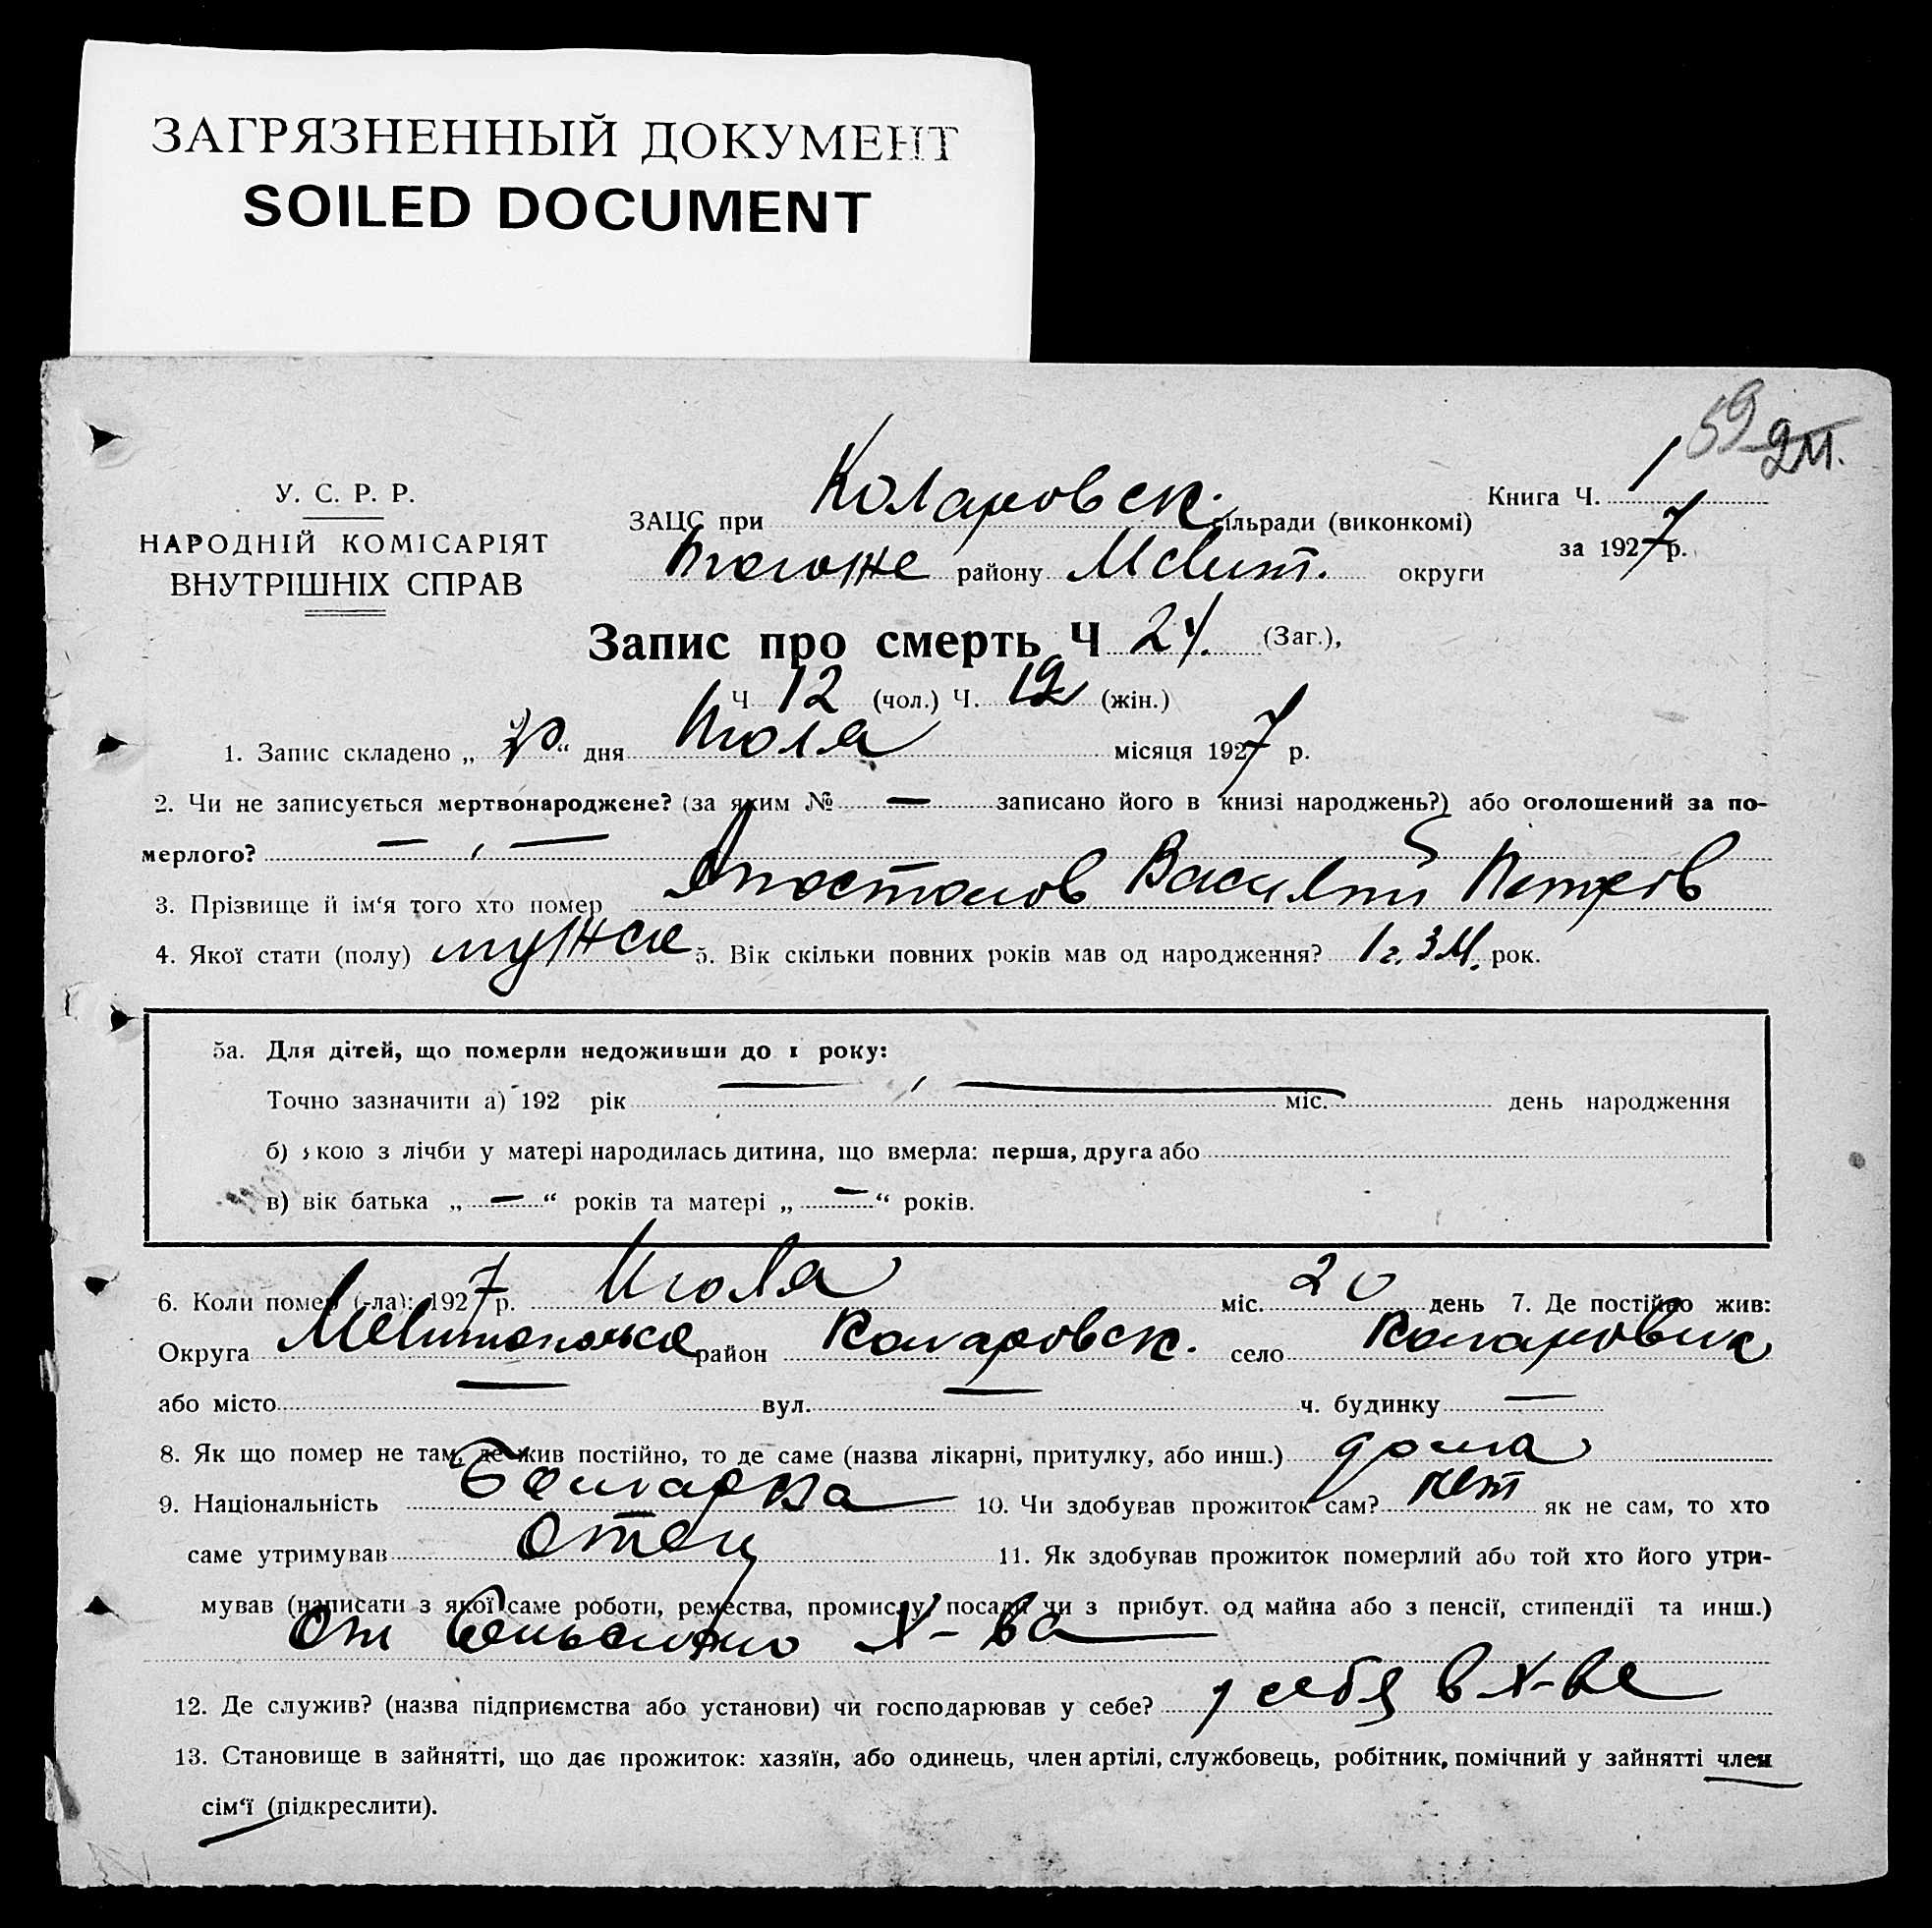 ЗАГРЯЗНЕННЫЙ ДОКУМЕНТ
SOILED DOCUMENT
59 2М.
У. С. Р. Р.
НАРОДНІЙ КОМІСАРІЯТ
ВНУТРІШНІХ СПРАВ
ЗАЦС при Коларовск. сільради (виконкомі)
тогоже району Мелит. округи
Книга Ч. 1
за 1927 р.
Запис про смерть Ч 24. (Заг.),
Ч 12 (чол.) Ч. 12 (жін.)
1. Запис складено „ “ дня Июля місяця 1927 р.
2. Чи не записується мертвонароджене? (за яким № — записано його в книзі народжень?) або оголошений за по-
мерлого? — , —
3. Прізвище й ім‘я того хто помер Апостолов Василий Петров
4. Якої стати (полу) мужск 5. Вік скільки повних років мав од народження? 1 г. 3 М. рок.
5а. Для дітей, що померли недоживши до 1 року:
Точно зазначити а) 192 рік — , — міс. день народження
б) якою з лічби у матері народилась дитина, що вмерла: перша, друга або
в) вік батька „ — “ років та матері „ — “ років.
6. Коли помер (-ла): 1927 р. Июля міс. 20 день 7. Де постійно жив:
Округа Мелитопольск район Коларовск. село Коларовка
або місто — вул. — ч. будинку —
8. Як що помер не там, де жив постійно, то де саме (назва лікарні, притулку, або инш.) дома
9. Національність Болгарка 10. Чи здобував прожиток сам? нет як не сам, то хто
саме утримував Отец 11. Як здобував прожиток померлий або той хто його утри-
мував (написати з якої саме роботи, ремества, промислу, посади чи з прибут. од майна або з пенсії, стипендії та инш.)
От сельского Х-ва
12. Де служив? (назва підприємства або установи) чи господарював у себе? у себя в х-ве
13. Становище в зайнятті, що дає прожиток: хазяїн, або одинець, член артілі, службовець, робітник, помічний у зайнятті член
сім‘ї (підкреслити).